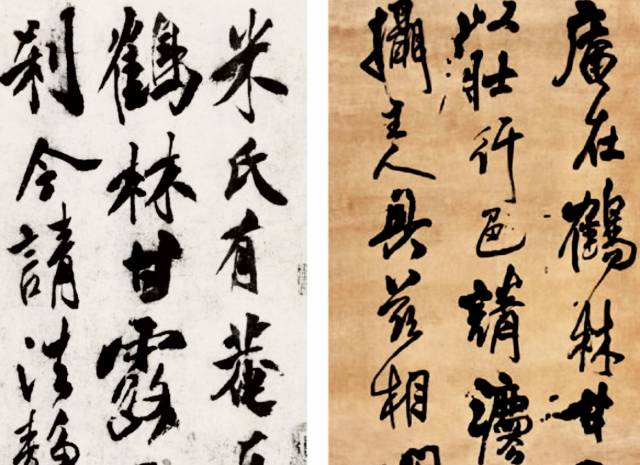 米氏有菴
鶴林甘露
刹今請法
菴在鶴林甘
以壯行色請
攝主人具茲相